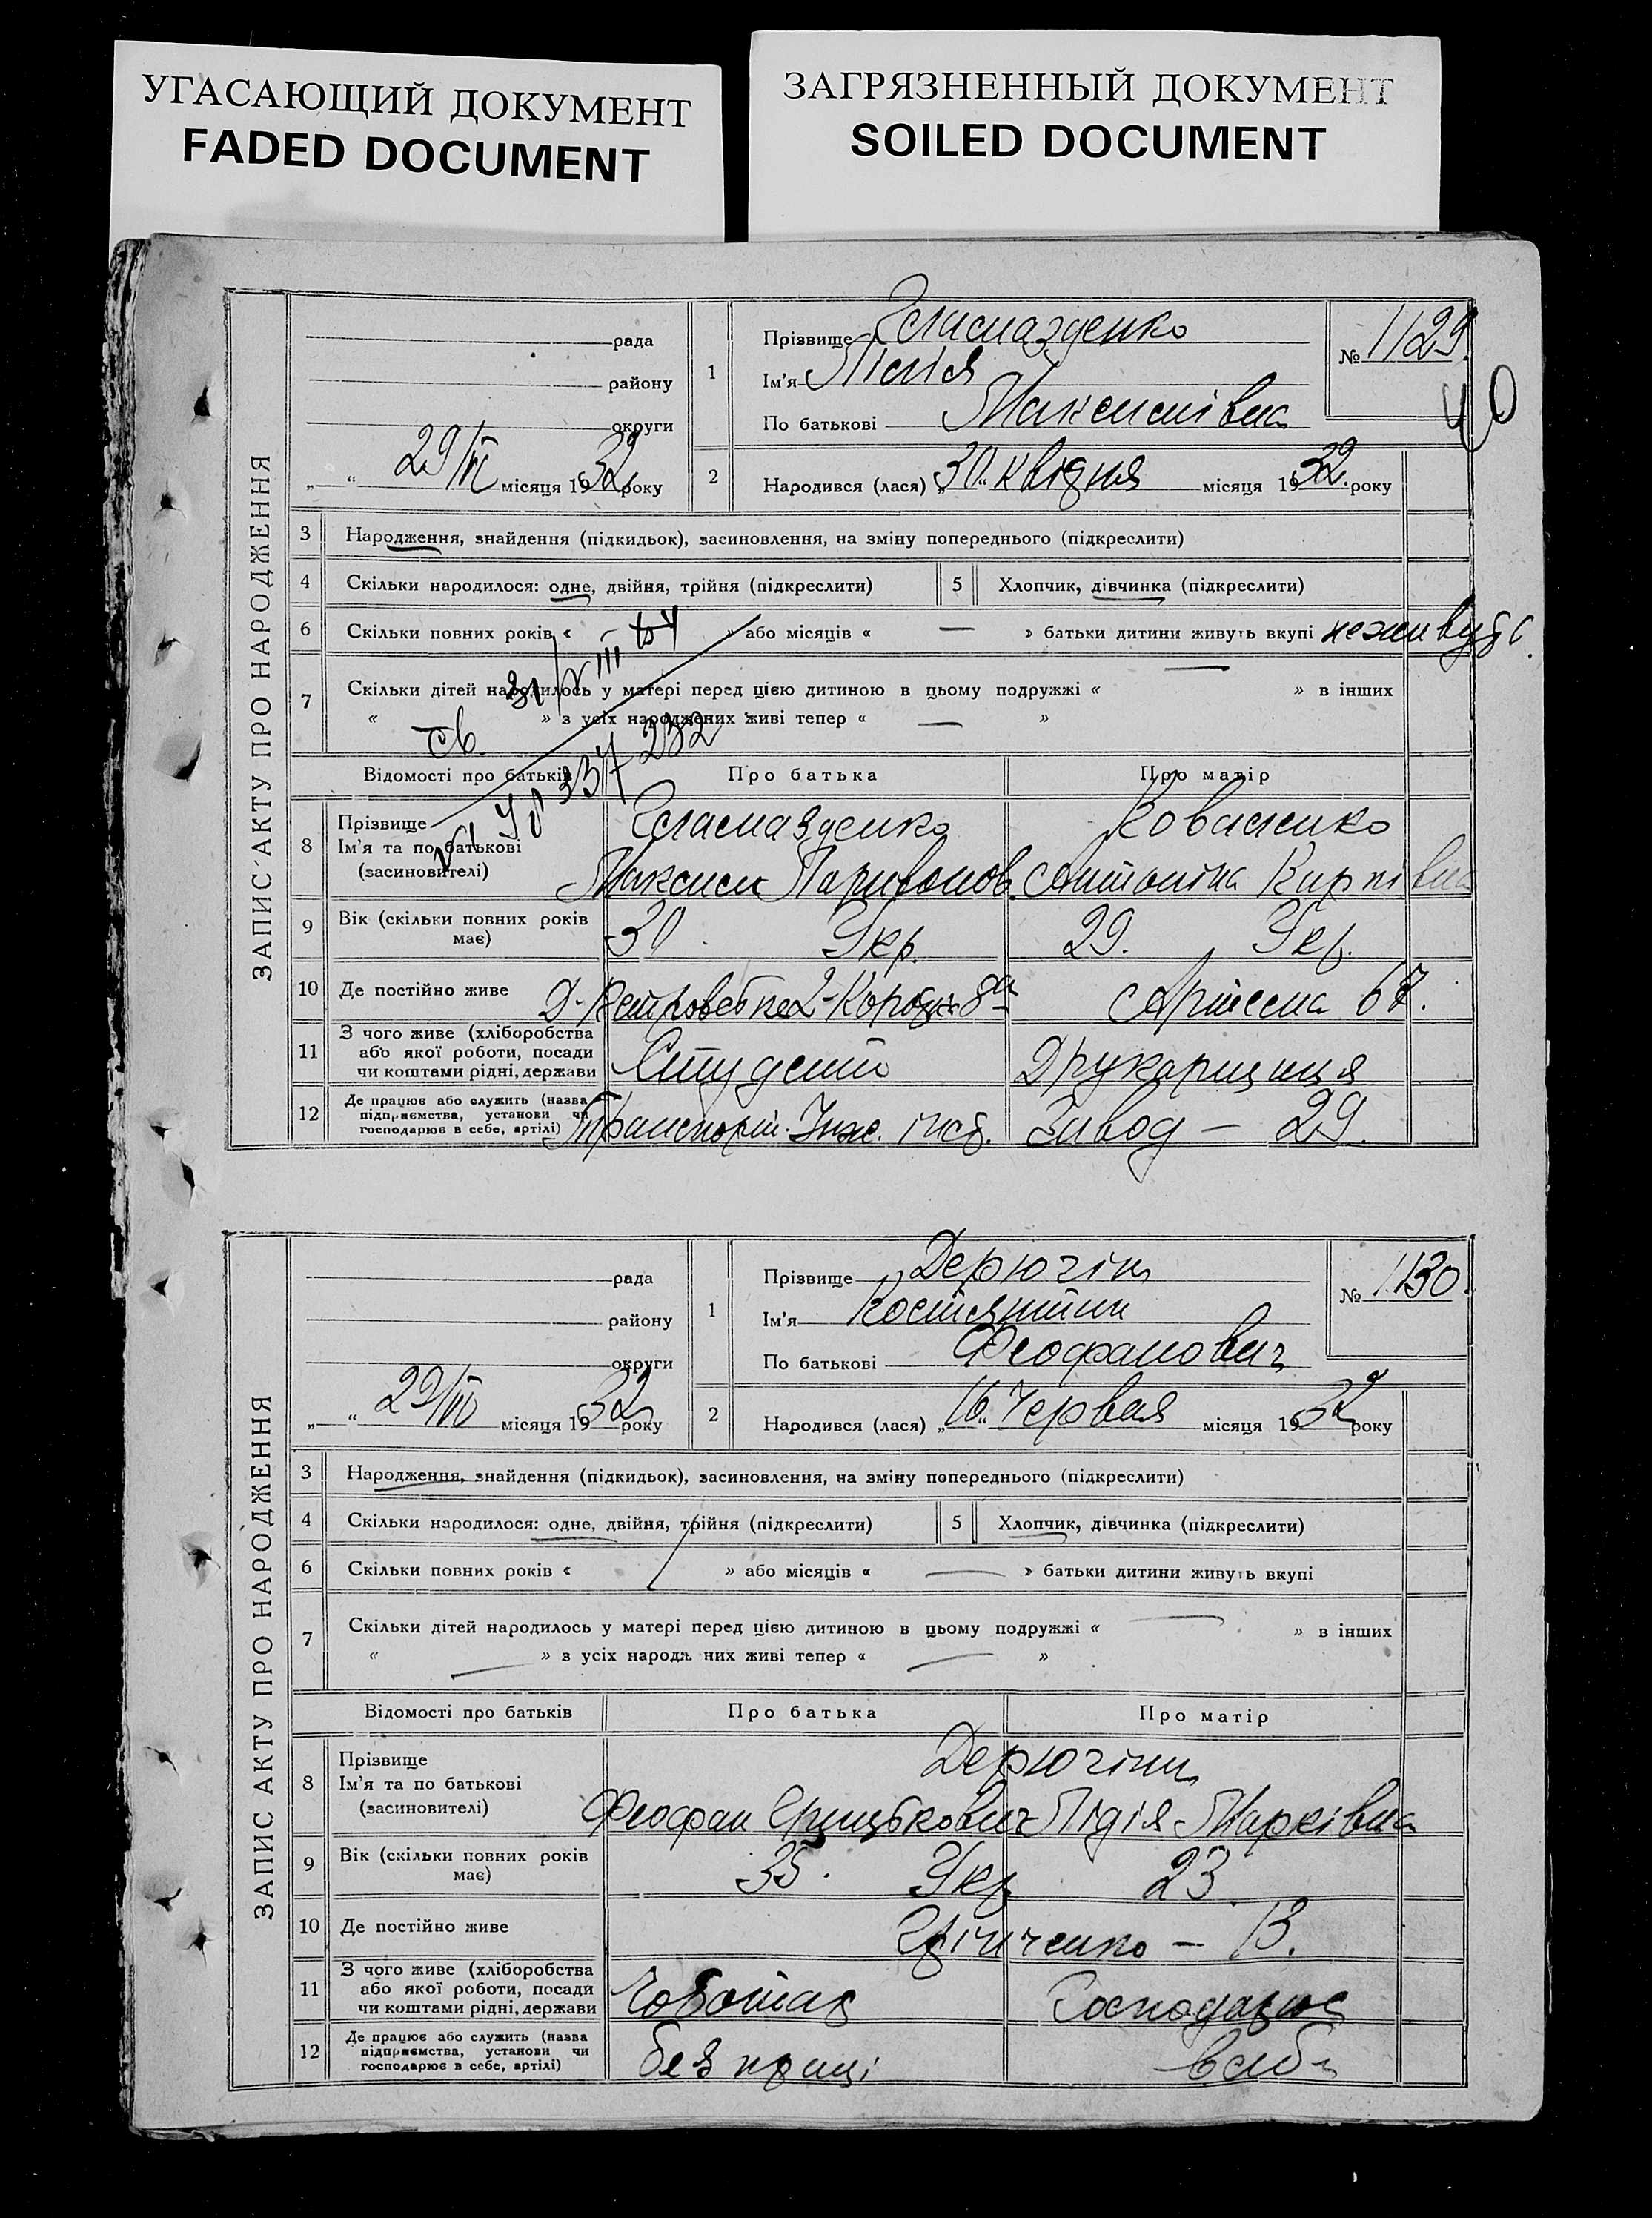 УГАСАЮЩИЙ ДОКУМЕНТ
FADED DOCUMENT
ЗАГРЯЗНЕННЫЙ ДОКУМЕНТ
SOILED DOCUMENT
ЗАПИС АКТУ ПРО НАРОДЖЕННЯ
рада
району
округи
„ “ 29/VI місяця 1932 року
1 Прізвище
Ім'я Лілія
По батькові Максимівна
№ 1129.
40
2 Народився (лася) „30“ квітня місяця 1932. року
3 Народження, знайдення (підкидьок), засиновлення, на зміну попереднього (підкреслити)
4 Скільки народилося: одне, двійня, трійня (підкреслити)
5 Хлопчик, дівчинка (підкреслити)
6 Скільки повних років « » або місяців « — » батьки дитини живуть вкупі не живуть
7 Скільки дітей народилось у матері перед цією дитиною в цьому подружжі « — » в інших
« » з усіх народжених живі тепер « — »
св. 337232
Відомості про батьків Про батька Про матір
8 Прізвище
Ім'я та по батькові
(засиновителі)
Коваленко
Максим Парифонов. Антоніна Карпівна
9 Вік (скільки повних років має) 30 Укр. 29. Укр.
10 Де постійно живе Артема 67.
11 З чого живе (хліборобства або якої роботи, посади чи коштами рідні, держави Студент Друкарщиця
12 Де працює або служить (назва підприємства, установи чи господарює в себе, артілі) Транспорт. Інж. інст. Завод — 29.
ЗАПИС АКТУ ПРО НАРОДЖЕННЯ
рада
району
округи
„ “ 29/VI місяця 1932 року
1 Прізвище Дерюгін
Ім'я Костянтин
По батькові Феофанович
№ 1130.
2 Народився (лася) „16“ Червня місяця 1932 року
3 Народження, знайдення (підкидьок), засиновлення, на зміну попереднього (підкреслити)
4 Скільки народилося: одне, двійня, трійня (підкреслити)
5 Хлопчик, дівчинка (підкреслити)
6 Скільки повних років « / » або місяців « — » батьки дитини живуть вкупі
7 Скільки дітей народилось у матері перед цією дитиною в цьому подружжі « — » в інших
« — » з усіх народж них живі тепер « — »
Відомості про батьків Про батька Про матір
8 Прізвище
Ім'я та по батькові
(засиновителі)
Дерюгіни
Феофан Грицькович Лідія Марківна
9 Вік (скільки повних років має) 35. Укр 23.
10 Де постійно живе Грінченко — 13.
11 З чого живе (хліборобства або якої роботи, посади чи коштами рідні, держави Чоботар Господарює
12 Де працює або служить (назва підприємства, установи чи господарює в себе, артілі) без праці в себе